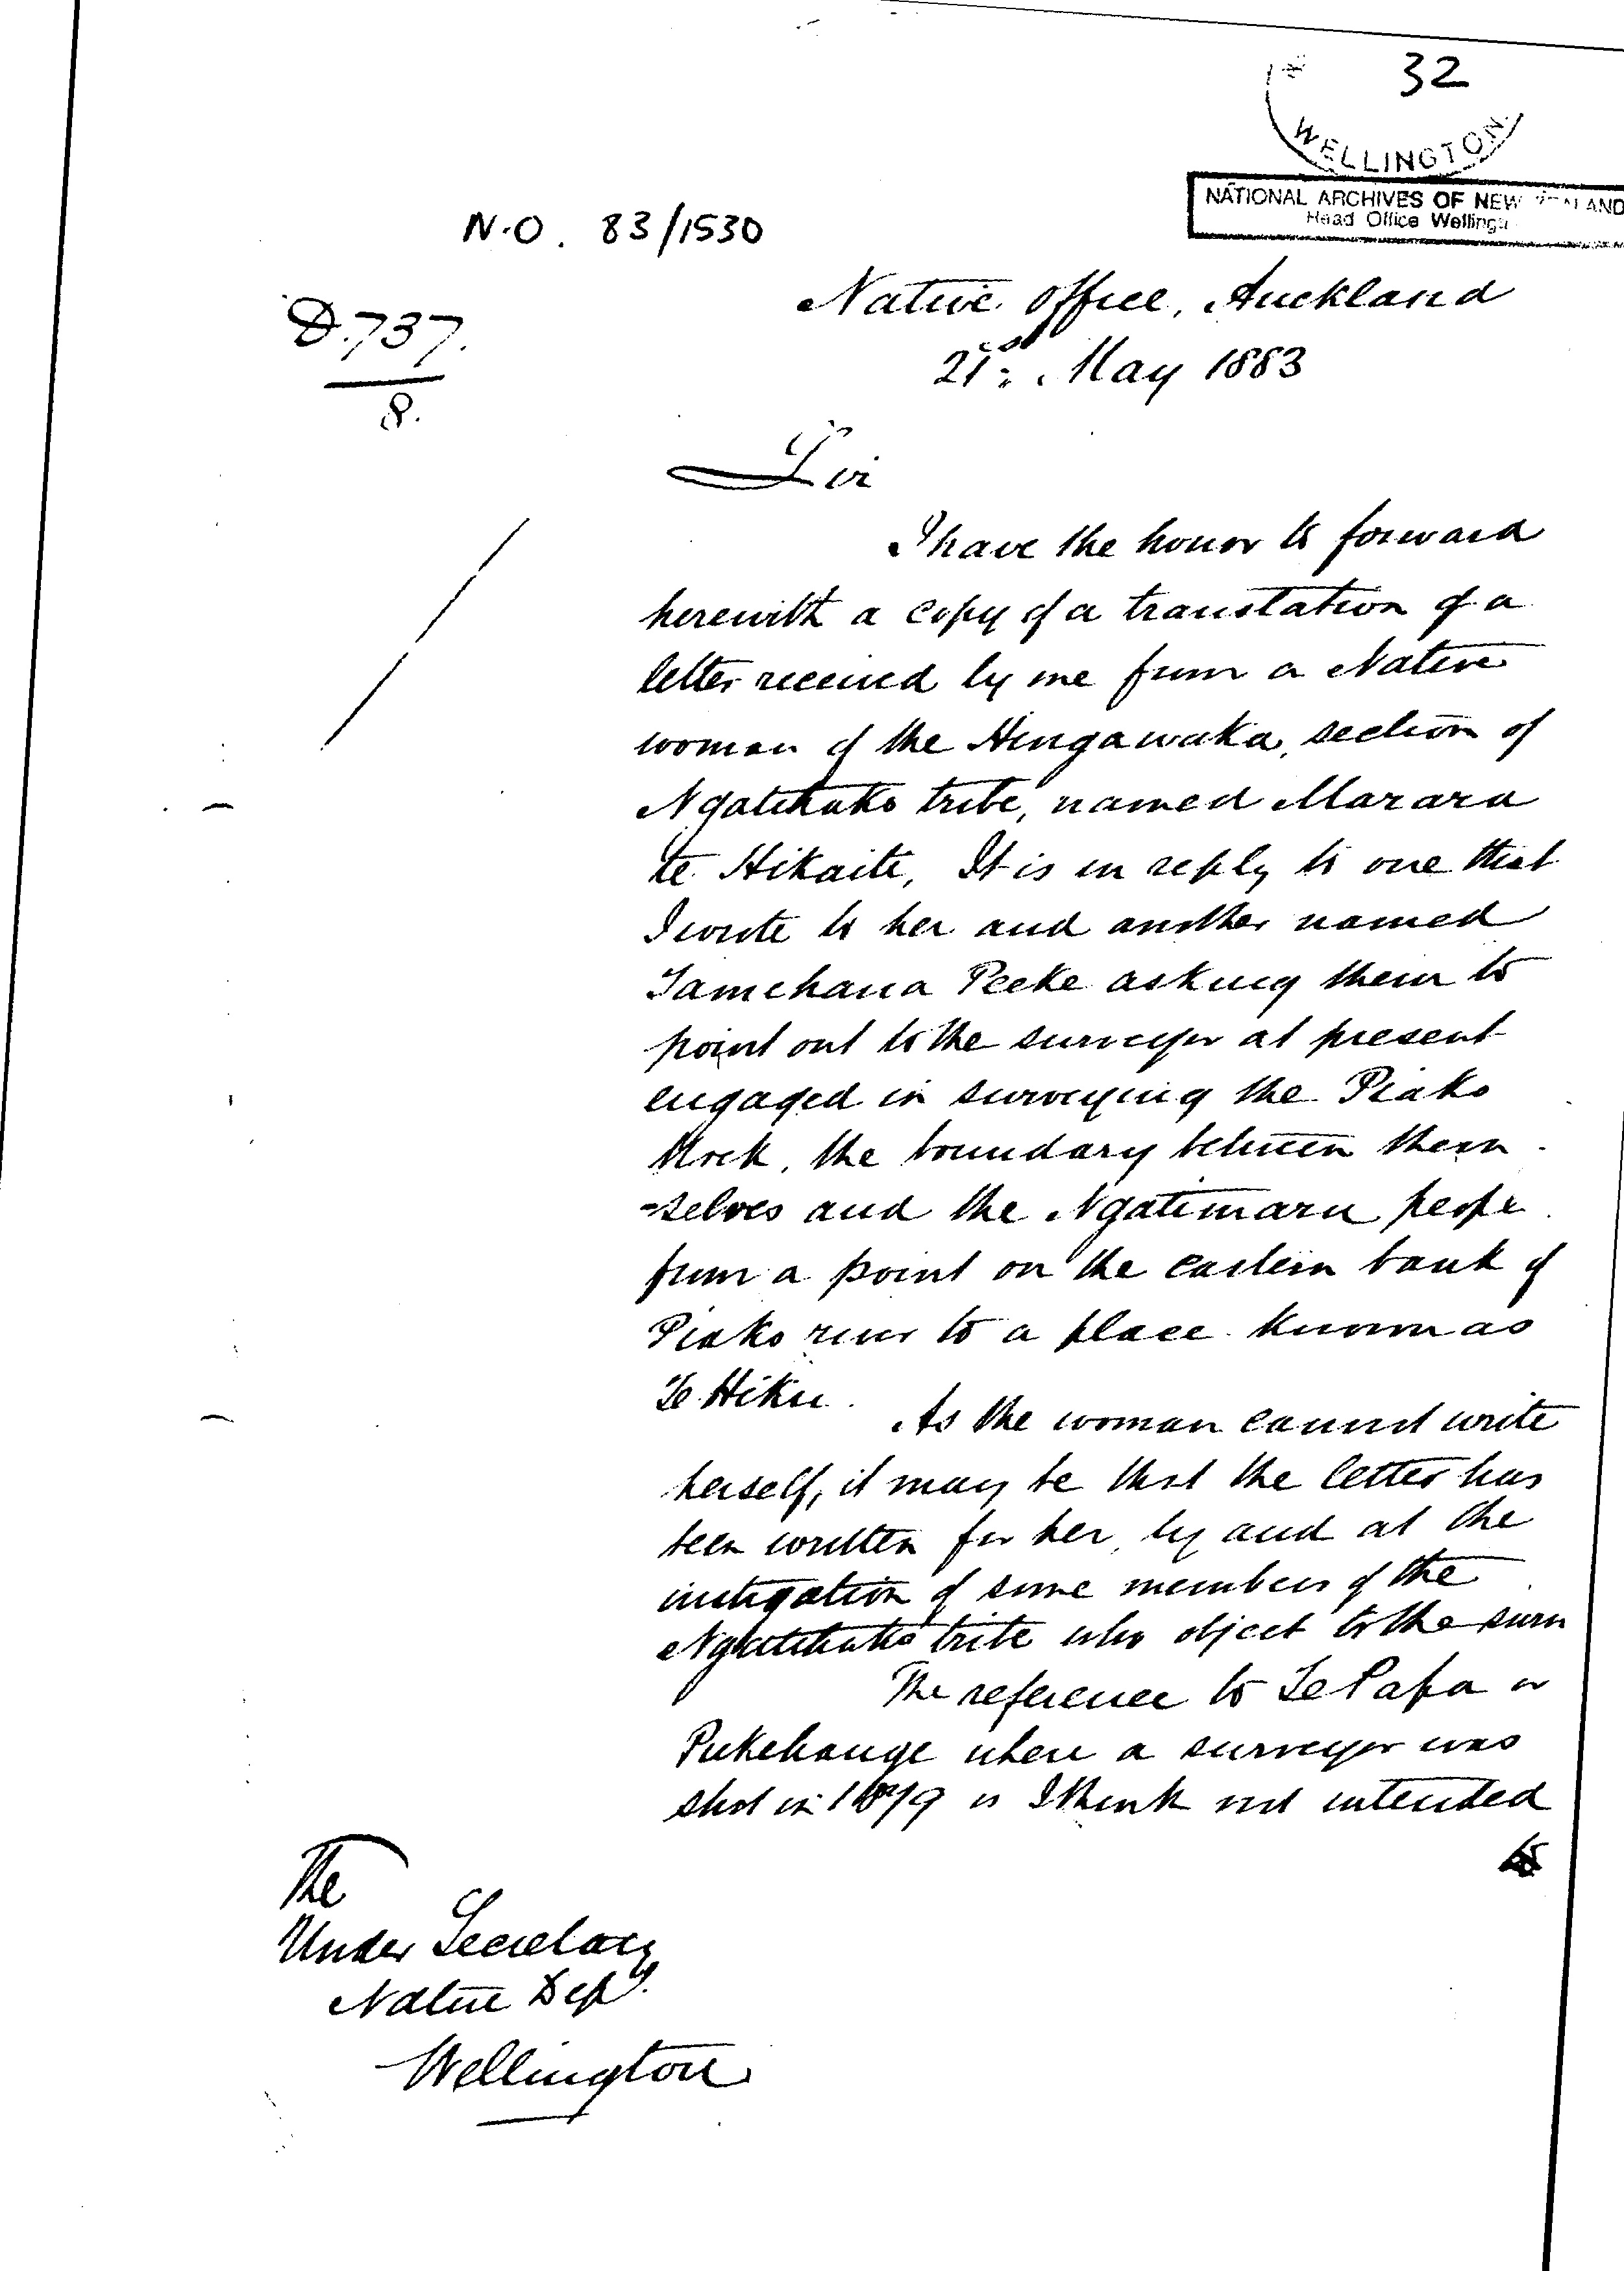 32
WELLINGTON.
NATIONAL ARCHIVES OF NEW ZEALAND
Head Office Wellingt
N.O. 83/1530
Native Office, Auckland
D.737.
8.
21st May 1883
Sir
I have the honor to forward
herewith a copy of a translation of a
letter received by me from a Native
woman of the Hingawaka, section of
Ngatihako tribe, named Marara
te Hikaite, It is in reply to one that
I wrote to her and another named
Tamehana Peeke asking them to
point out to the surveyor at present
engaged in surveying the Piako
block, the boundary between them-
-selves and the Ngatimaru people
from a point on the eastern bank of
Piako river to a place known as
Te Hiku.
As the woman cannot write
herself, it may be that the letter has
been written for her, by and at the
instigation of some members of the
Ngatihako tribe who object to the surv
The reference to Te Papa or
Pukehange where a surveyor was
shot in 1879 is I think not intended
to
The
Under Secretary
Native Dept.
Wellington